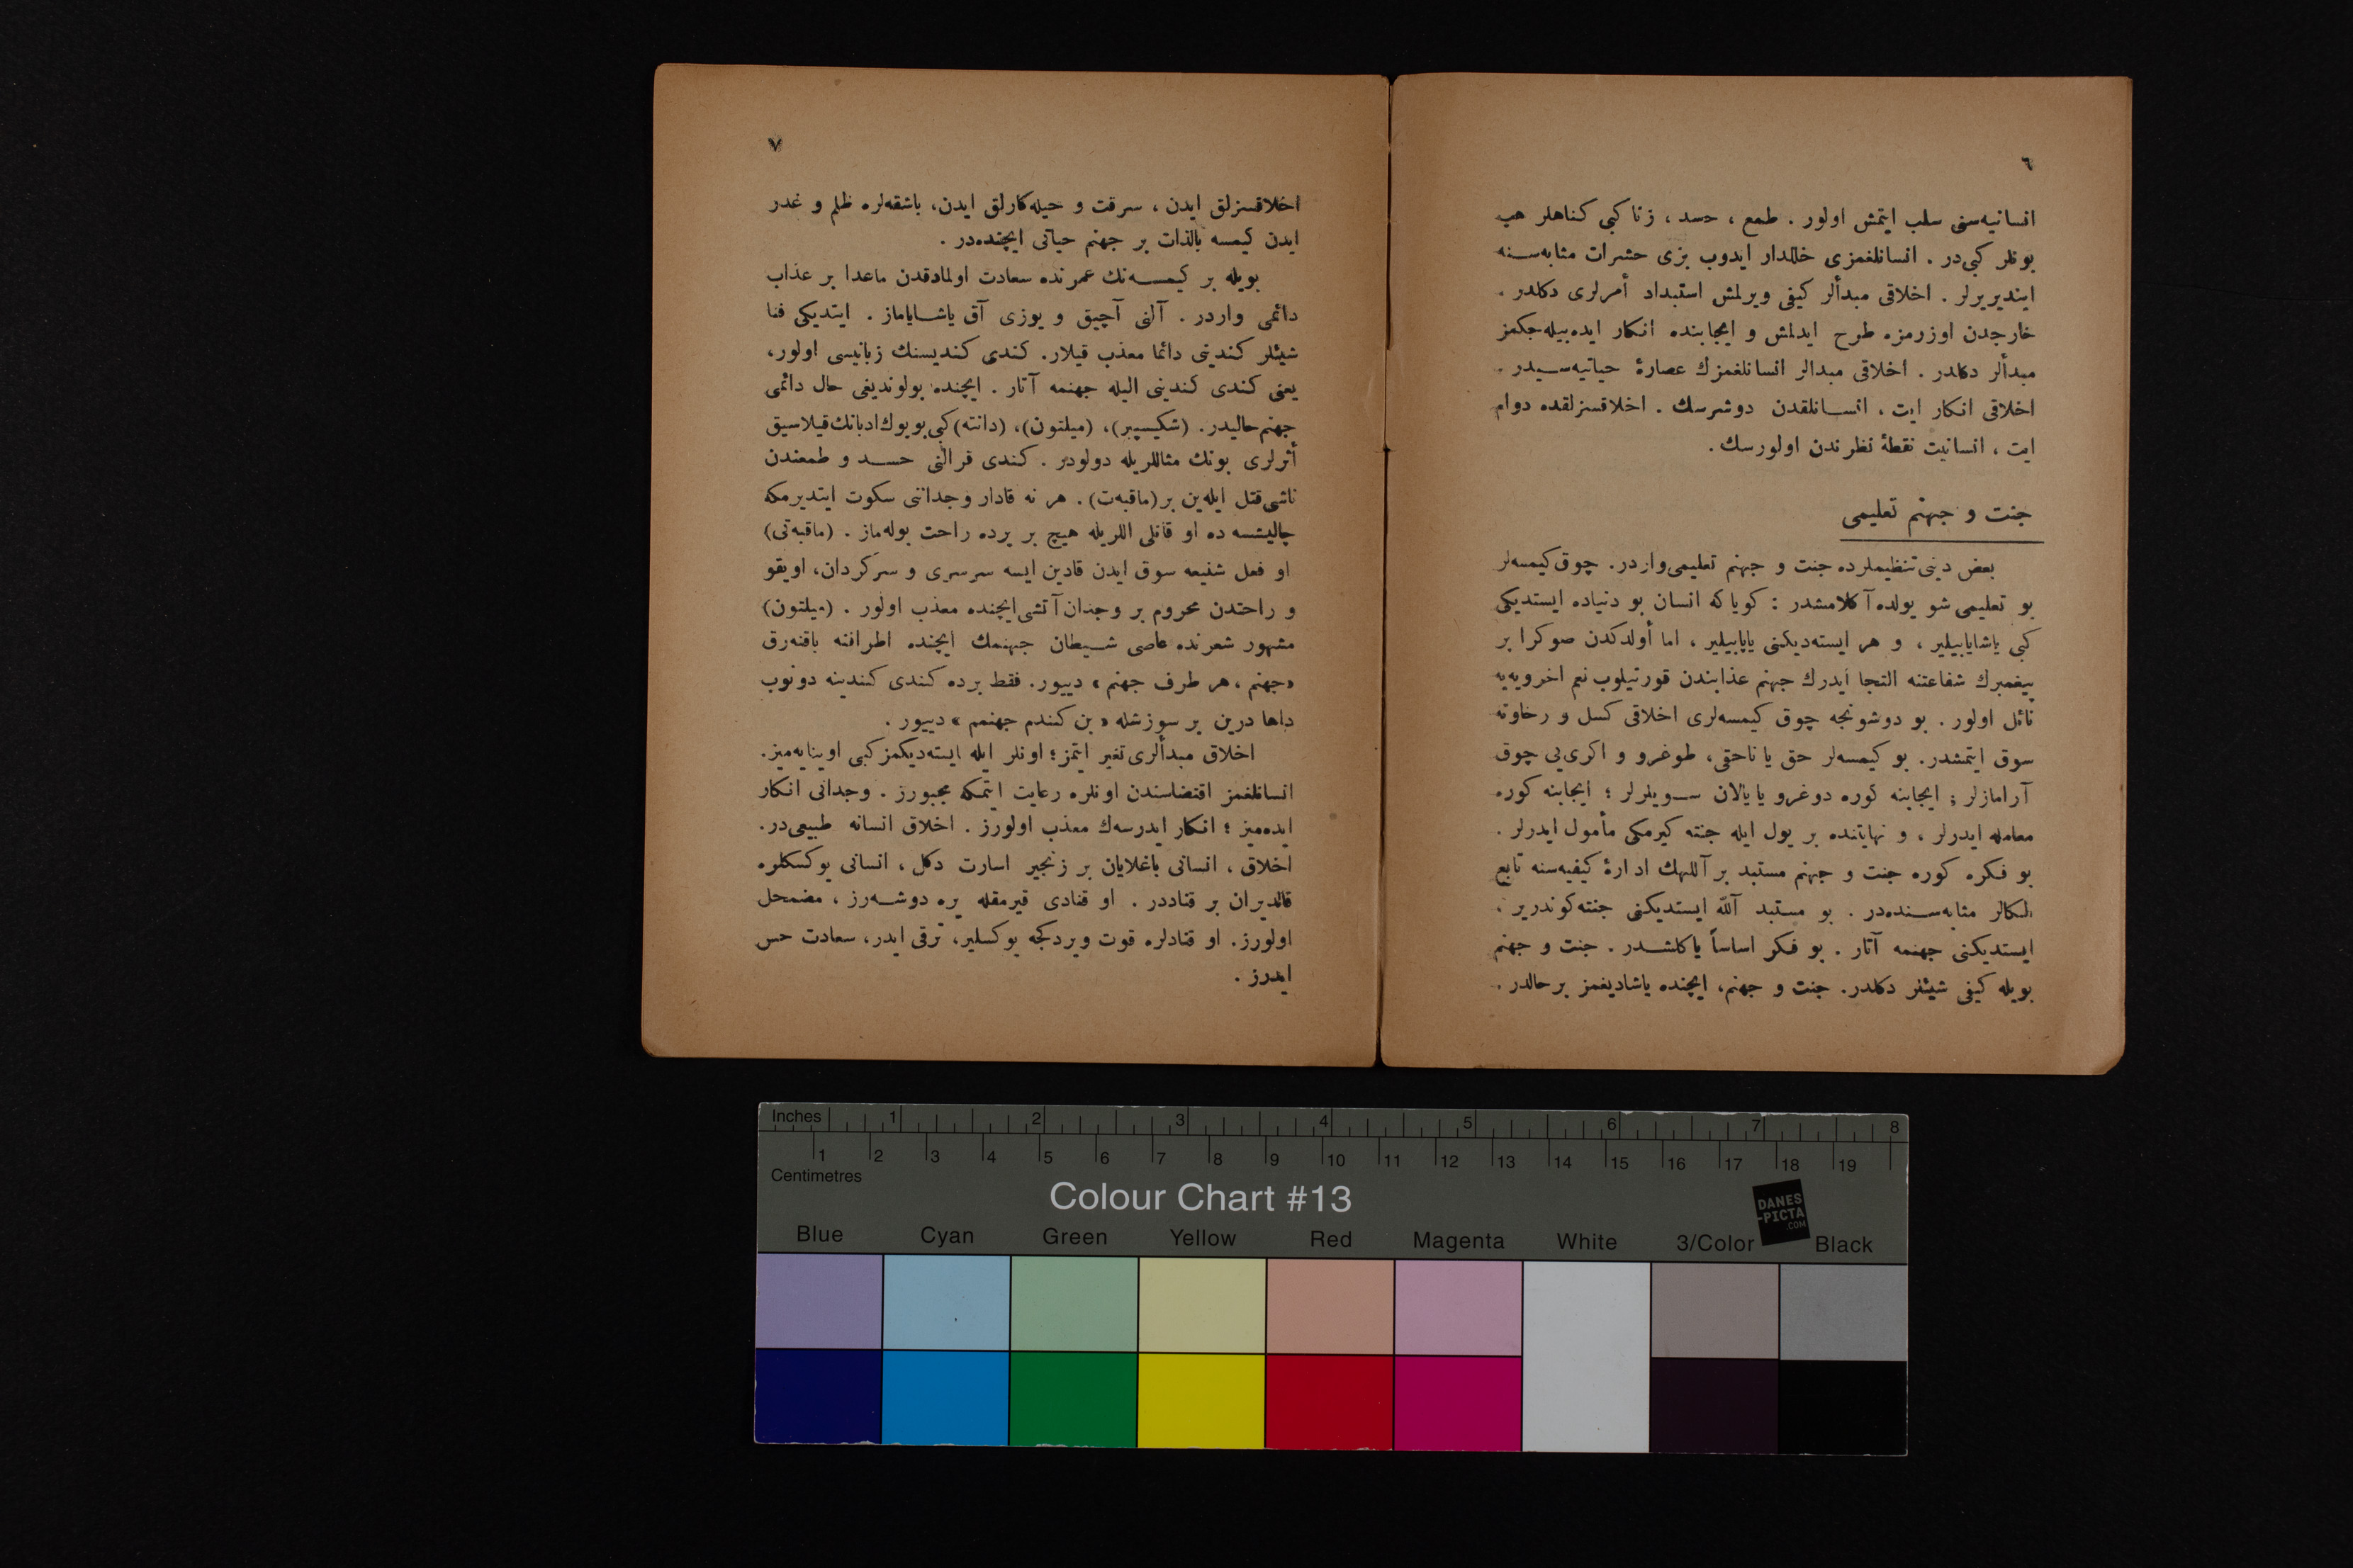 ٦
انسانیه‌سنی سلب ایتمش اولور . طمع ، حسد ، زنا کبی کناهلر هپ
بونلر کبی‌در . انسانلغمزی خللدار ایدوب بزی حشرات مثابه‌سنه
ایندیریرلر . اخلاقی مبدألر کیفی ویرلمش استبداد أمرلری دکلدر .
خارجدن اوزرمزه طرح ایدلمش و ایجابنده انکار ایده‌بیله‌جکمز
مبدألر دکلدر . اخلاقی مبدالر انسانلغمزك عصارۀ حیاتیه‌سیدر .
اخلاقی انکار ایت ، انسانلقدن دوشرسك . اخلاقسزلقده دوام
ایت ، انسانیت نقطۀ نظرندن اولورسك .
جنت و جهنم تعلیمی
بعض دینی تنظیملرده جنت و جهنم تعلیمی واردر. چوق کیمسه‌لر
بو تعلیمی شو یولده آکلامشدر : کویاکه انسان بو دنیاده ایستدیکی
کبی یاشایابیلیر ، و هر ایسته‌دیکنی یاپابیلیر ، اما أولدکدن صوکرا بر
پیغمبرك شفاعتنه التجا ایدرك جهنم عذابندن قورتیلوب نعم اخرویه‌یه
نائل اولور . بو دوشونجه چوق کیمسه‌لری اخلاقی کسل و رخاوته
سوق ایتمشدر. بو کیمسه‌لر حق یا ناحقی، طوغرو و اکری‌یی چوق
آرامازلر ؛ ایجابنه کوره دوغرو یا یالان سویلرلر ؛ ایجابنه کوره
معامله ایدرلر ، و نهایتنده بر یول ایله جنته کیرمکی مأمول ایدرلر .
بو فکره کوره جنت و جهنم مستبد بر آللهك ادارۀ کیفیه‌سنه تابع
ملکلر مثابه‌سنده‌در . بو مستبد آلله ایستدیکنی جنته کوندریر ،
ایستدیکنی جهنمه آتار . بو فکر اساساً یاکلشدر . جنت و جهنم
بویله کیفی شیئلر دکلدر. جنت و جهنم، ایچنده یاشادیغمز بر حالدر .
٧
اخلاقسزلق ایدن ، سرقت و حیله‌کارلق ایدن، باشقه‌لره ظلم و غدر
ایدن کیمسه بالذات بر جهنم حیاتی ایچنده‌در .
بویله بر کیمسه‌نك عمرنده سعادت اولمادقدن ماعدا بر عذاب
دائمی واردر . آلنی آچیق و یوزی آق یاشایاماز . ایتدیکی فنا
شیئلر کندینی دائما معذب قیلار. کندی کندیسنك زبانیسی اولور،
یعنی کندی کندینی الیله جهنمه آتار . ایچنده بولوندیغی حال دائمی
جهنم حالیدر. (شکیسپیر)، (میلتون)، (دانته) کبی بویوك ادبانك قیلاسیق
أثرلری بونك مثاللریله دولودر . کندی قرالنی حسد و طمعندن
ناشی قتل ایله‌ین بر (ماقبه‌ت) . هر نه قادار وجداننی سکوت ایتدیرمکه
چالیشسه ده او قاتلی اللریله هیچ بر یرده راحت بوله‌ماز . (ماقبه‌تی)
او فعل شنیعه سوق ایدن قادین ایسه سرسری و سرکردان، اویقو
و راحتدن محروم بر وجدان آتشی ایچنده معذب اولور . (میلتون)
مشهور شعرنده عاصی شیطان جهنمك ایچنده اطرافنه باقنه‌رق
«جهنم ، هر طرف جهنم » دییور. فقط برده کندی کندینه دونوب
داها درین بر سوزشله « بن کندم جهنمم » دییور .
اخلاق مبدألری تغیر ایتمز ؛ اونلر ایله ایسته‌دیکمز کبی اوینایه‌میز.
انسانلغمز اقتضاسندن اونلره رعایت ایتمکه مجبورز . وجدانی انکار
ایده‌میز ؛ انکار ایدرسه‌ك معذب اولورز . اخلاق انسانه طبیعی‌در.
اخلاق ، انسانی باغلایان بر زنجیر اسارت دکل ، انسانی یوکسکلره
قالدیران بر قناددر . او قنادی قیرمقله یره دوشه‌رز ، مضمحل
اولورز. او قنادلره قوت ویردکجه یوکسلیر، ترقی ایدر، سعادت حس
ایدرز .
Inches 1 2 3 4 5 6 7 8
1 2 3 4 5 6 7 8 9 10 11 12 13 14 15 16 17 18 19
Centimetres
Colour Chart #13
DANES
-PICTA
.COM
Blue Cyan Green Yellow Red Magenta White 3/Color Black